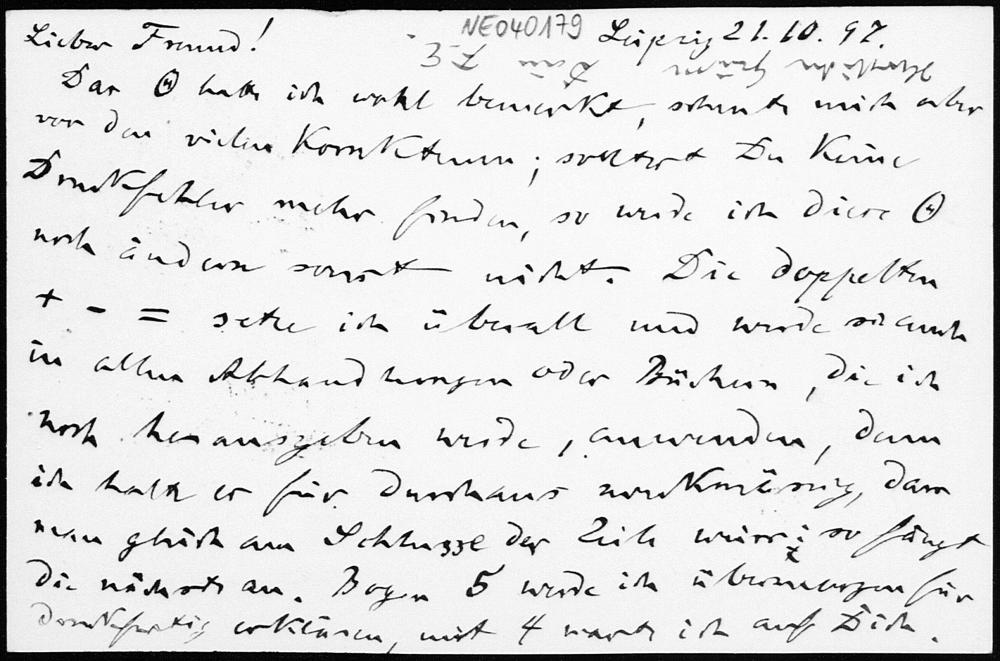 NE040179
Lieber Freund! Leipzig 21.10.97.
Herzlichen Gruss Dein F.E.
Das Θ hatte ich wohl bemerkt, scheute mich aber
vor den vielen Korrekturen; solltest Du Keine
Druckfehler mehr finden, so werde ich diese Θ
noch ändern sonst nicht. Die doppelten
+ - = setze ich überall und werde sie auch
in allen Abhandlungen oder Büchern, die ich
noch herausgeben werde, anwenden, denn
ich halte es für durchaus zweckmässig, dass
man gleich am Schlusse der Zeile weiss: so fängt
die nächste an. Bogen 5 werde ich übermorgen für
druckfertig erklären, mit 4 warte ich auf Dich.